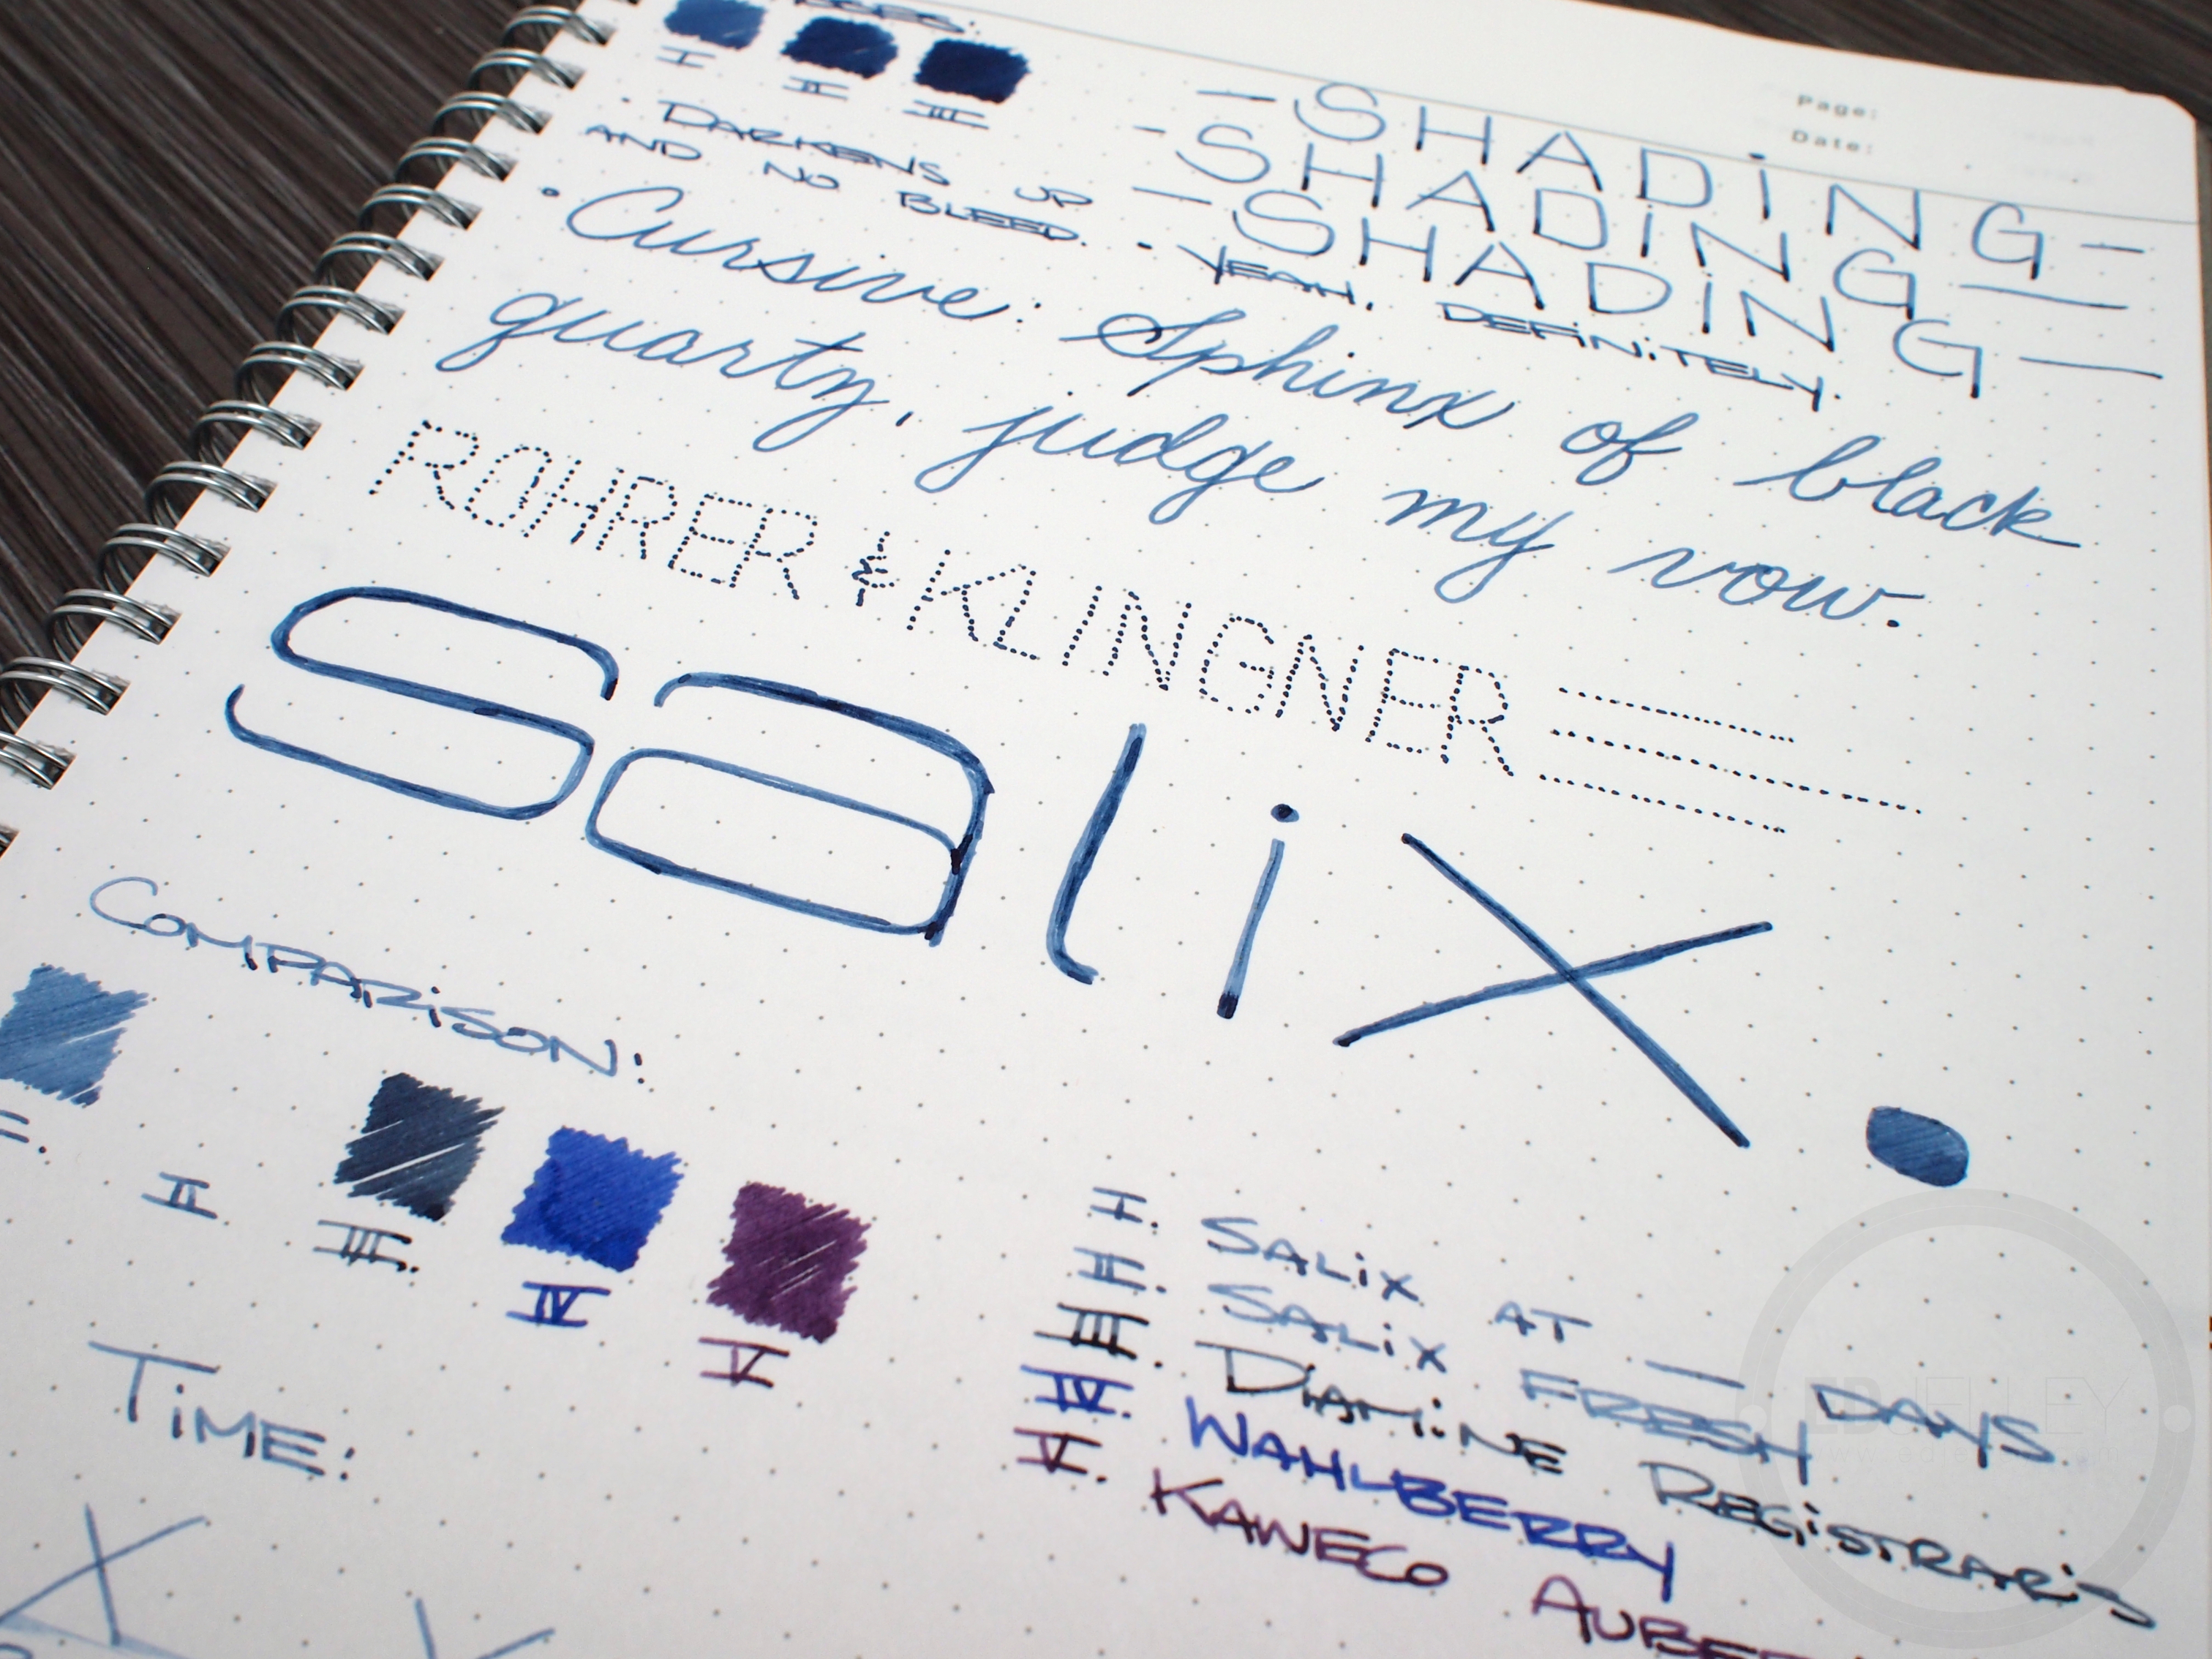 I
II
III
Page:
Date:
- DARKENS UP
AND NO BLEED.
-SHADiNG-
-SHADiNG-
-SHADiNG-
• YEAH. DEFiNiTELY.
• Cursive: Sphinx of black
quartz, judge my vow.
ROHRER & KLINGNER
salix.
COMPARiSON:
II
III.
IV
V
I. SALiX AT — DAYS
II. SALiX FRESH
III. DiAMiNE REGiSTRARiS
IV. WAHLBERRY
V. KAWECO
TiME:
ED JELLEY